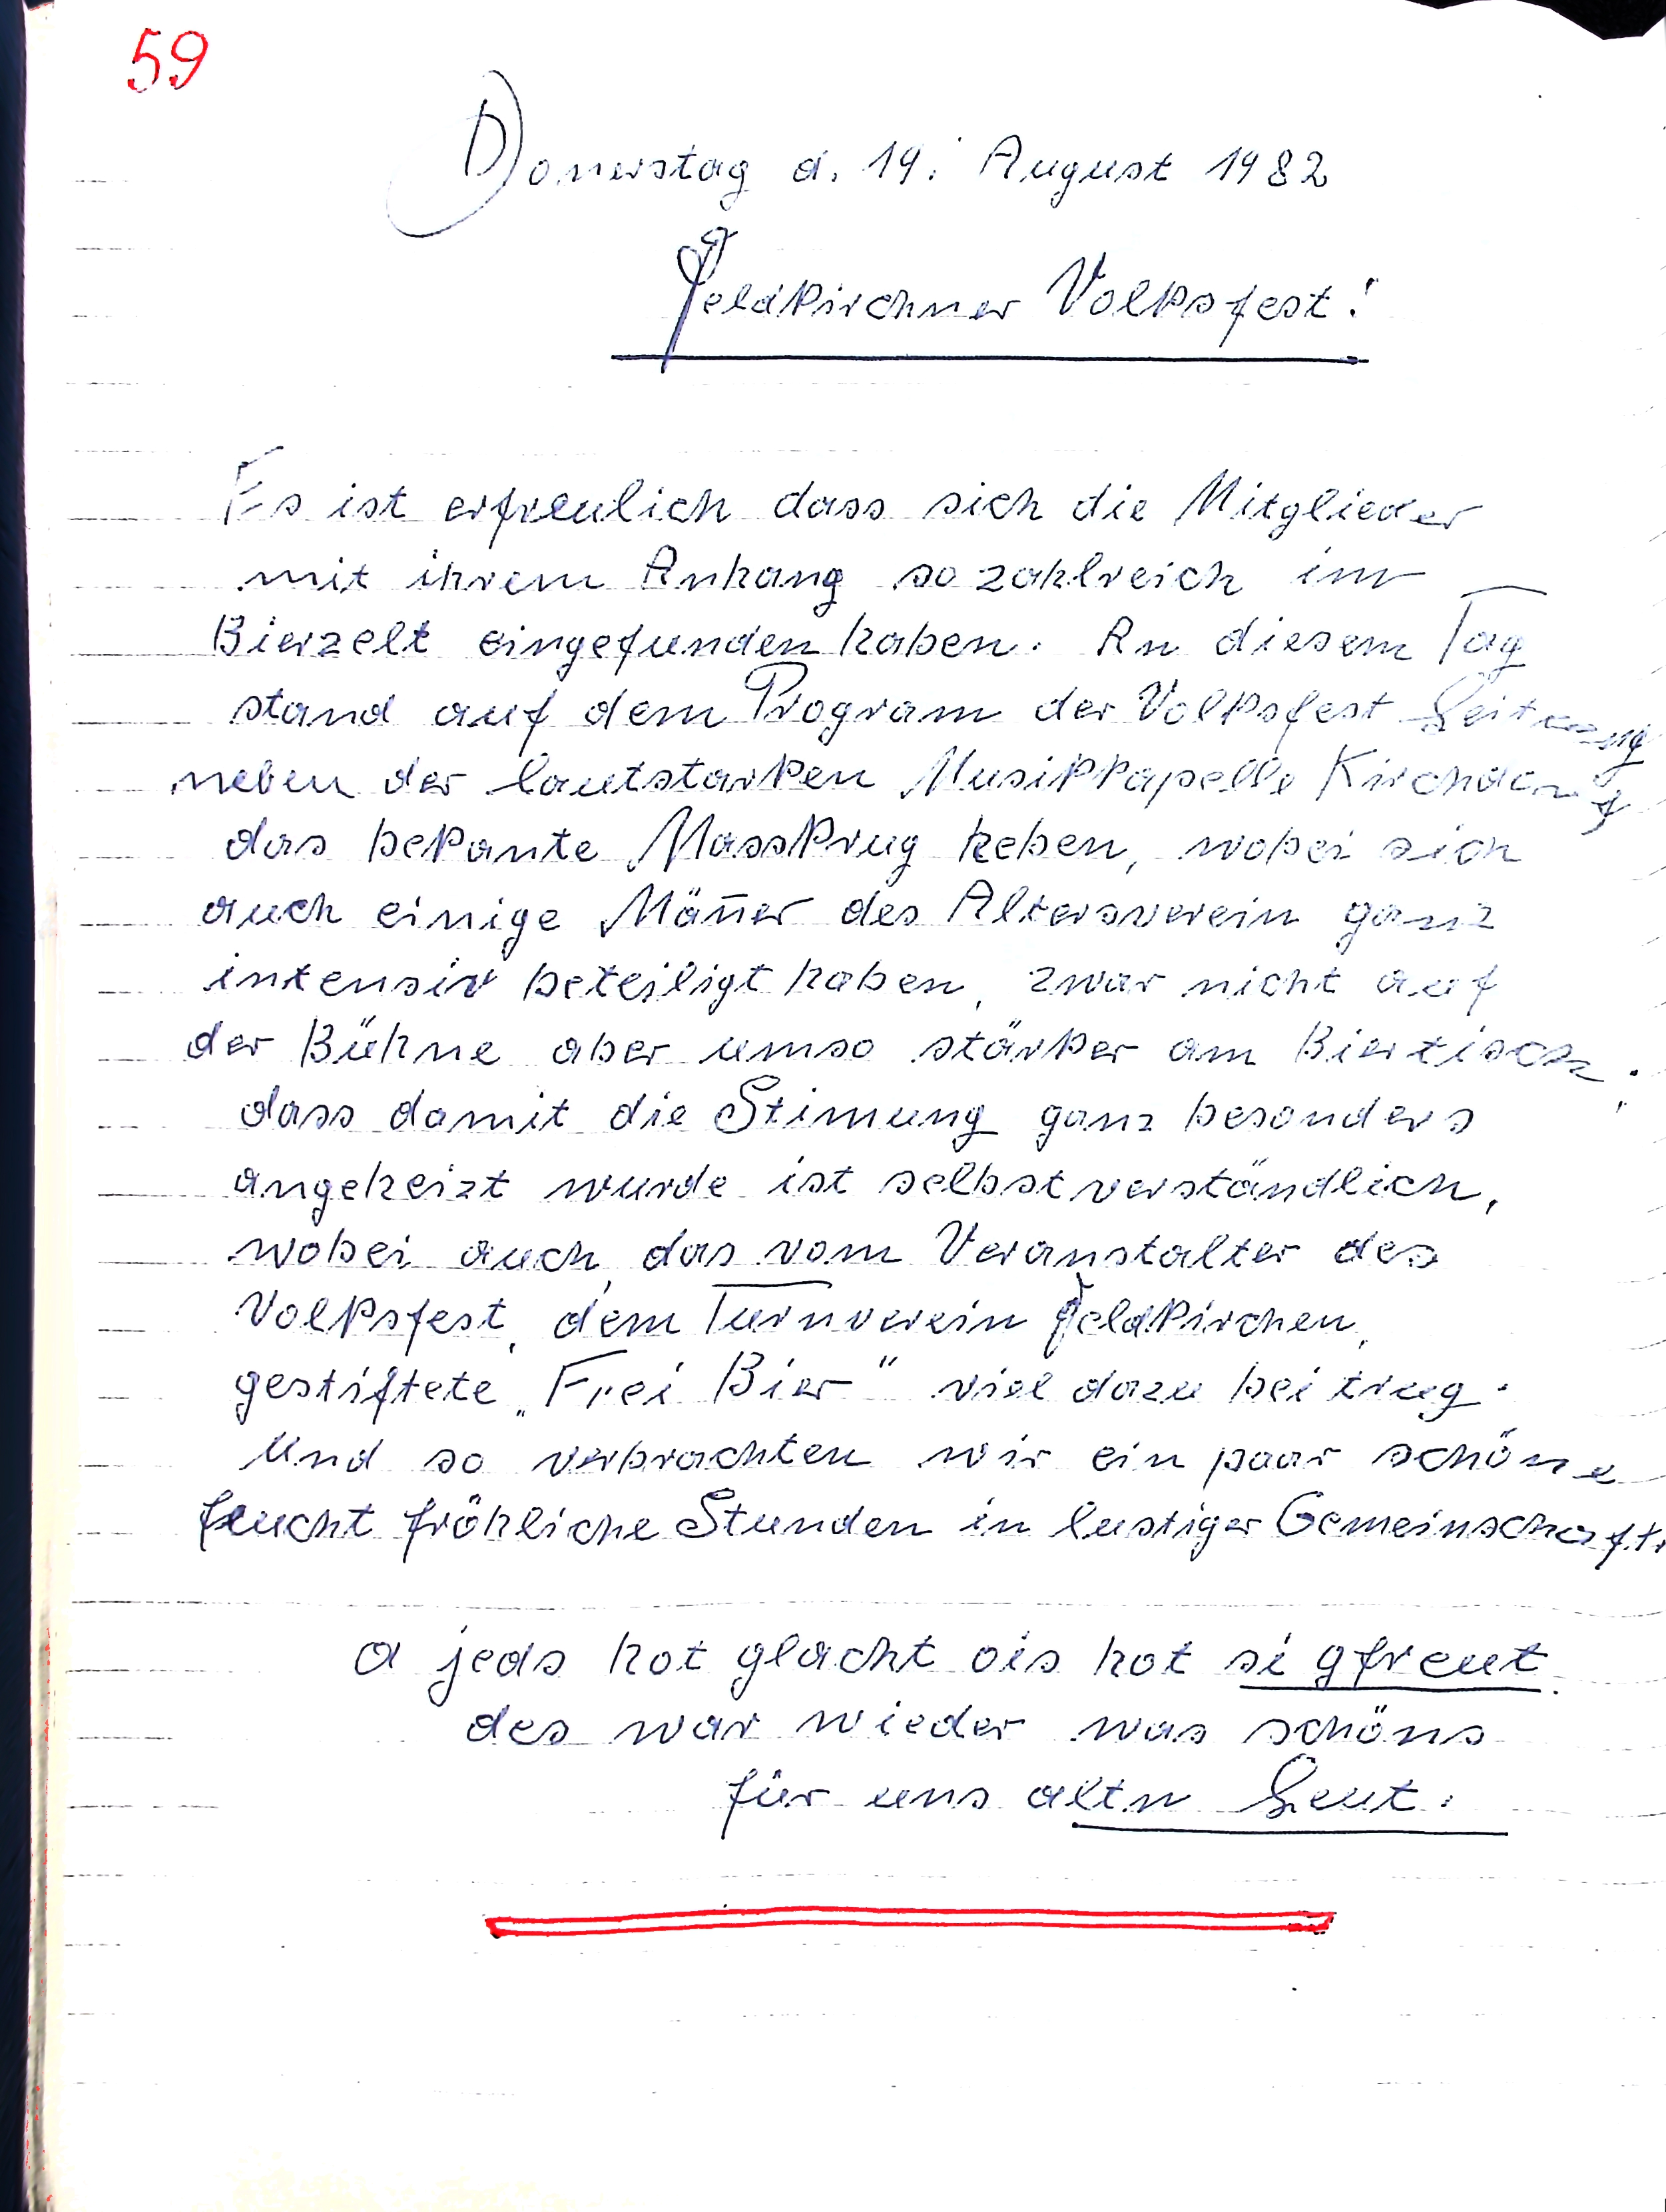 59
Donerstag d. 19. August 1982
Feldkirchner Volksfest!
Es ist erfreulich dass sich die Mitglieder
mit ihrem Anhang so zahlreich im
Bierzelt eingefunden haben. An diesem Tag
stand auf dem Program der Volksfest Leitung
neben der lautstarken Musikkapelle Kirchdorf
das bekante Masskrug heben, wobei sich
auch einige Mäner des Altersverein ganz
intensiv beteiligt haben, zwar nicht auf
der Bühne aber umso stärker am Biertisch;
dass damit die Stimung ganz besonders
angeheizt wurde ist selbstverständlich,
wobei auch, das vom Veranstalter des
Volksfest, dem Turnverein Feldkirchen,
gestiftete „Frei Bier" viel dazu beitrug.
Und so verbrachten wir ein paar schöne
feucht fröhliche Stunden in lustiger Gemeinschaft.
a jeds hot glacht ois hot si gfreut
des war wieder was schöns
für uns altn Leut.